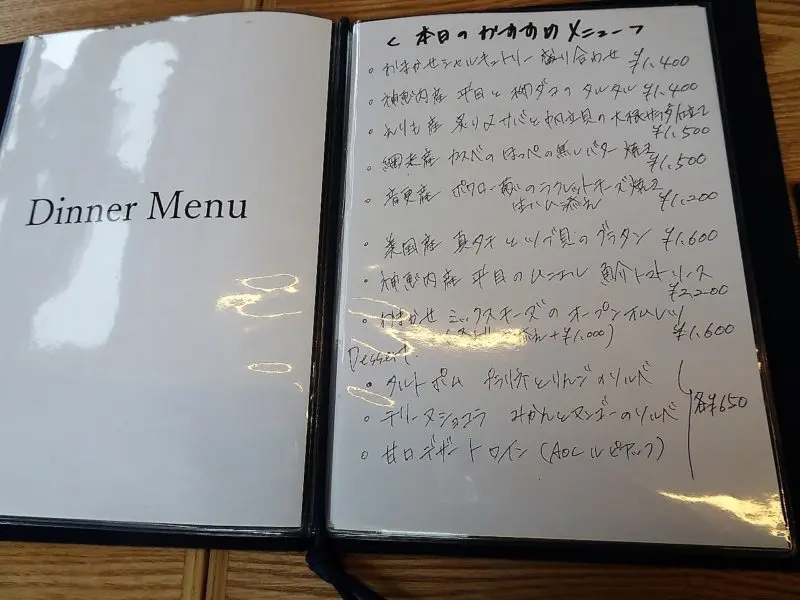 Dinner Menu
< 本日のおすすめメニュー >
・おまかせシャルキュトリー 盛り合わせ ¥1,400
・神恵内産 平目と柳ダコのタルタル ¥1,400
・えりも産 炙り〆サバと帆立貝の大根サラダ仕立て
¥1,500
・網走産 カスベのほっぺの焦しバター焼き ¥1,500
・音更産 マッシュルームのラクレットチーズ焼き
¥1,200
産 真ダチとツブ貝のグラタン ¥1,600
・神恵内産 平目のムニエル 魚介トマトソース
¥2,200
・おまかせ ミックスチーズのオープンオムレツ
+¥1,000) ¥1,600
Dessert.
・タルトポム とりんごのソルベ
・テリーヌショコラ みかんとマンゴーのソルベ
各¥650
・甘口デザートワイン (AOC ルピアック)